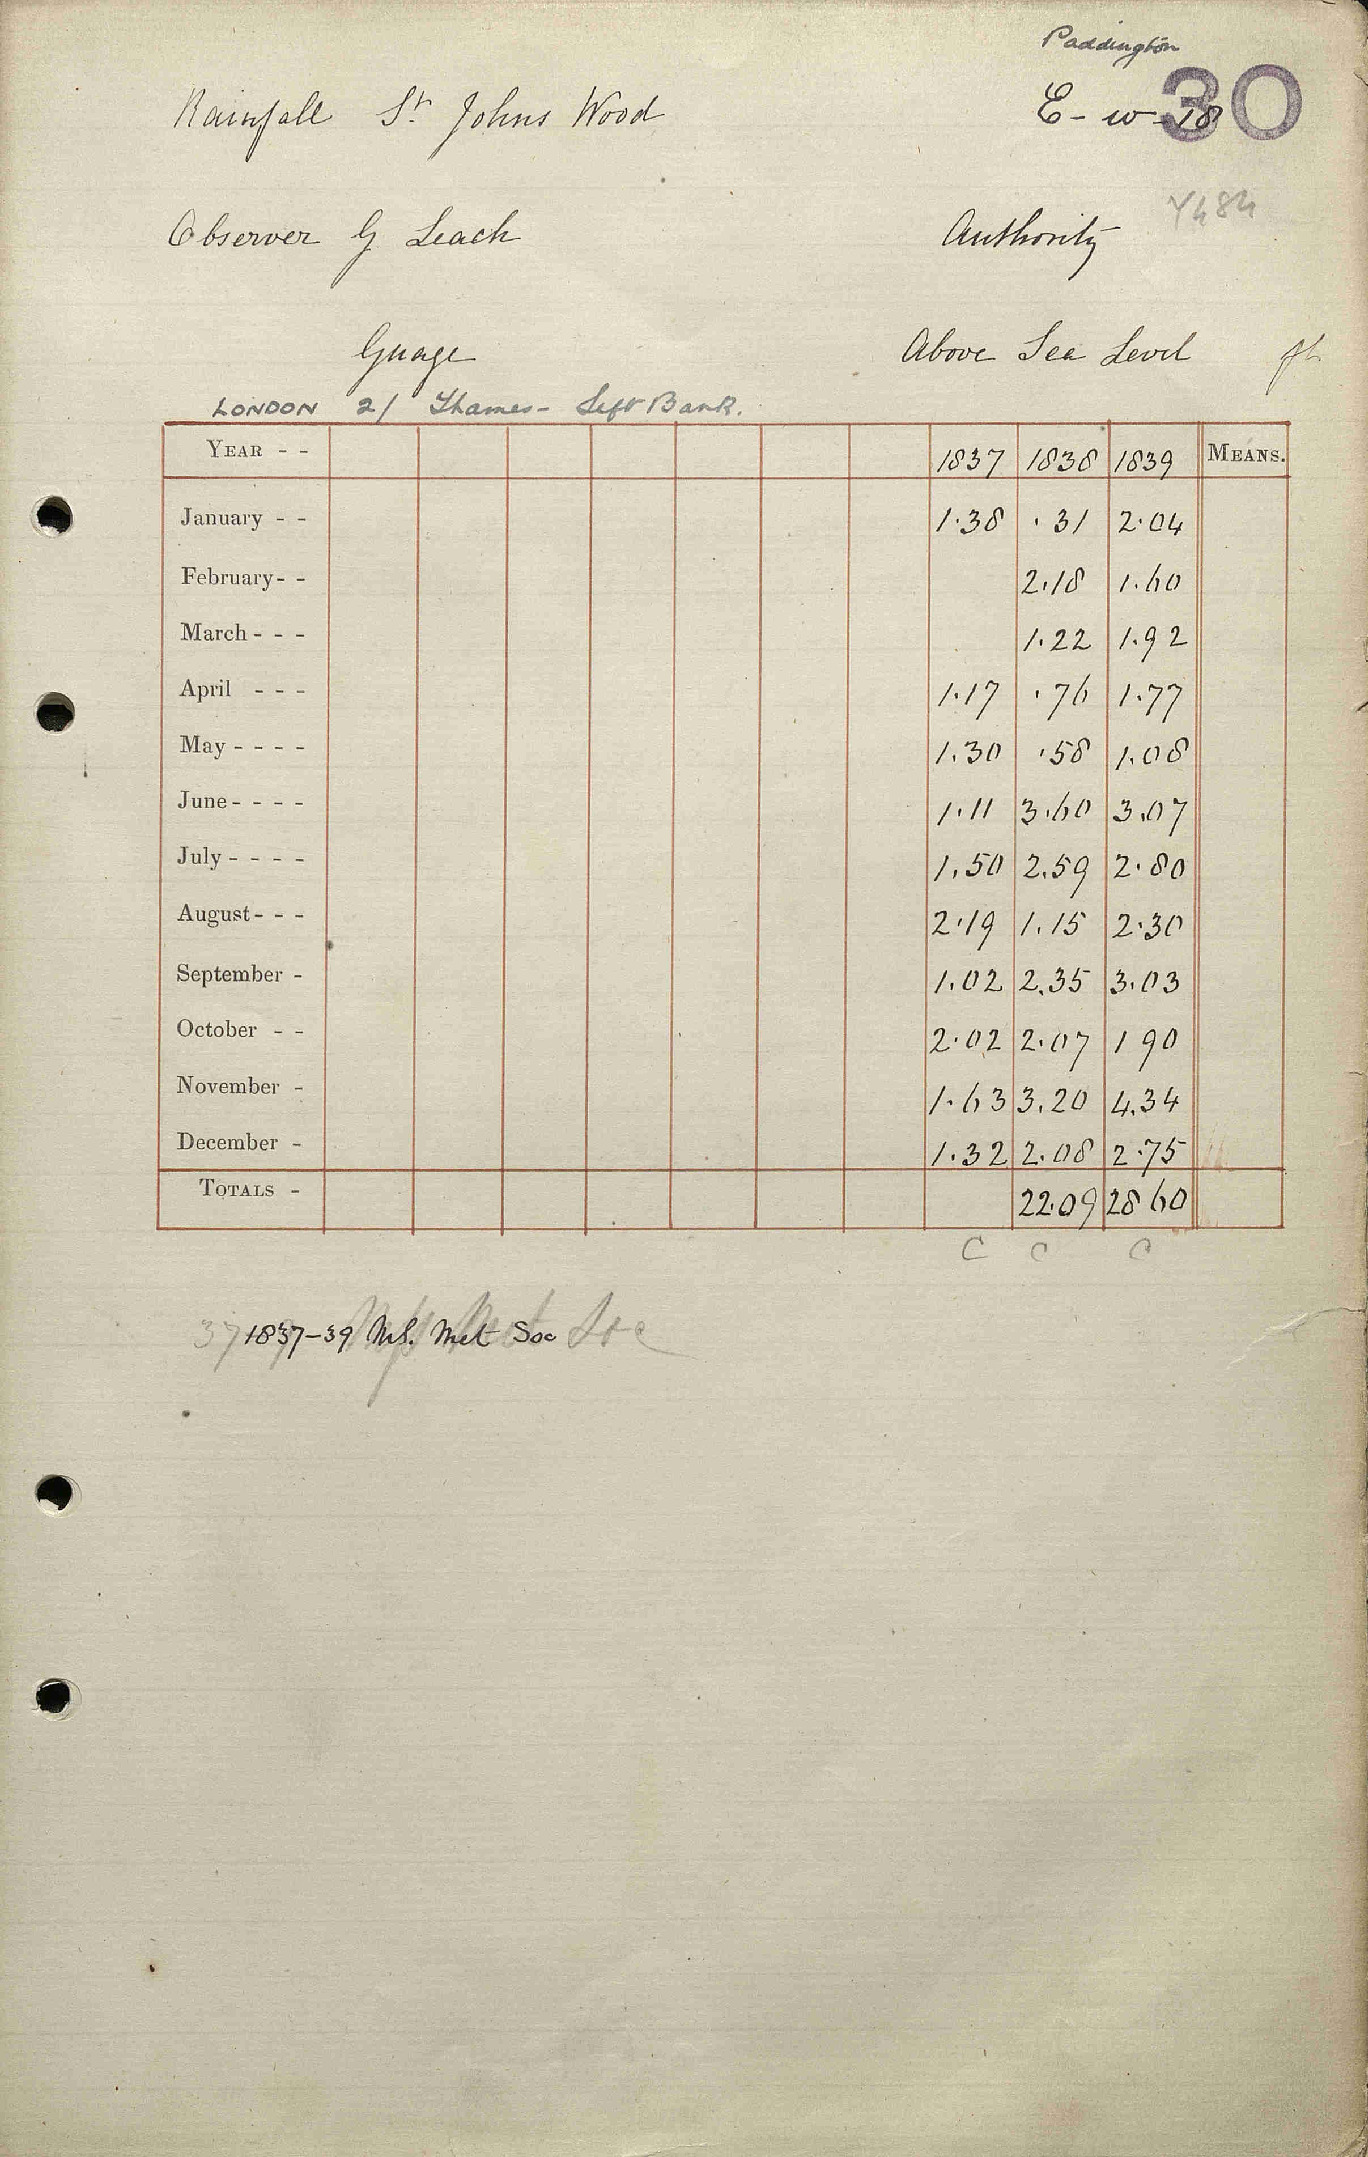 Paddington
30
Rainfall St Johns Wood E-w-18
Y484
Observer G Leach Authority
Guage Above Sea Level ft
LONDON 2/ Thames- Left Bank.
YEAR - - 1837 1838 1839 MEANS.
January - - 1.38 .31 2.04
February - - 2.18 1.60
March - - - 1.22 1.92
April - - - 1.17 .76 1.77
May - - - - 1.30 .58 1.08
June - - - - 1.11 3.60 3.07
July - - - - 1.50 2.59 2.80
August - - - 2.19 1.15 2.30
September - 1.02 2.35 3.03
October - - 2.02 2.07 1 90
November - 1.63 3.20 4.34
December - 1.32 2.08 2.75
TOTALS - 22.09 28 60
C C C
1837-39 MS. Met Soc